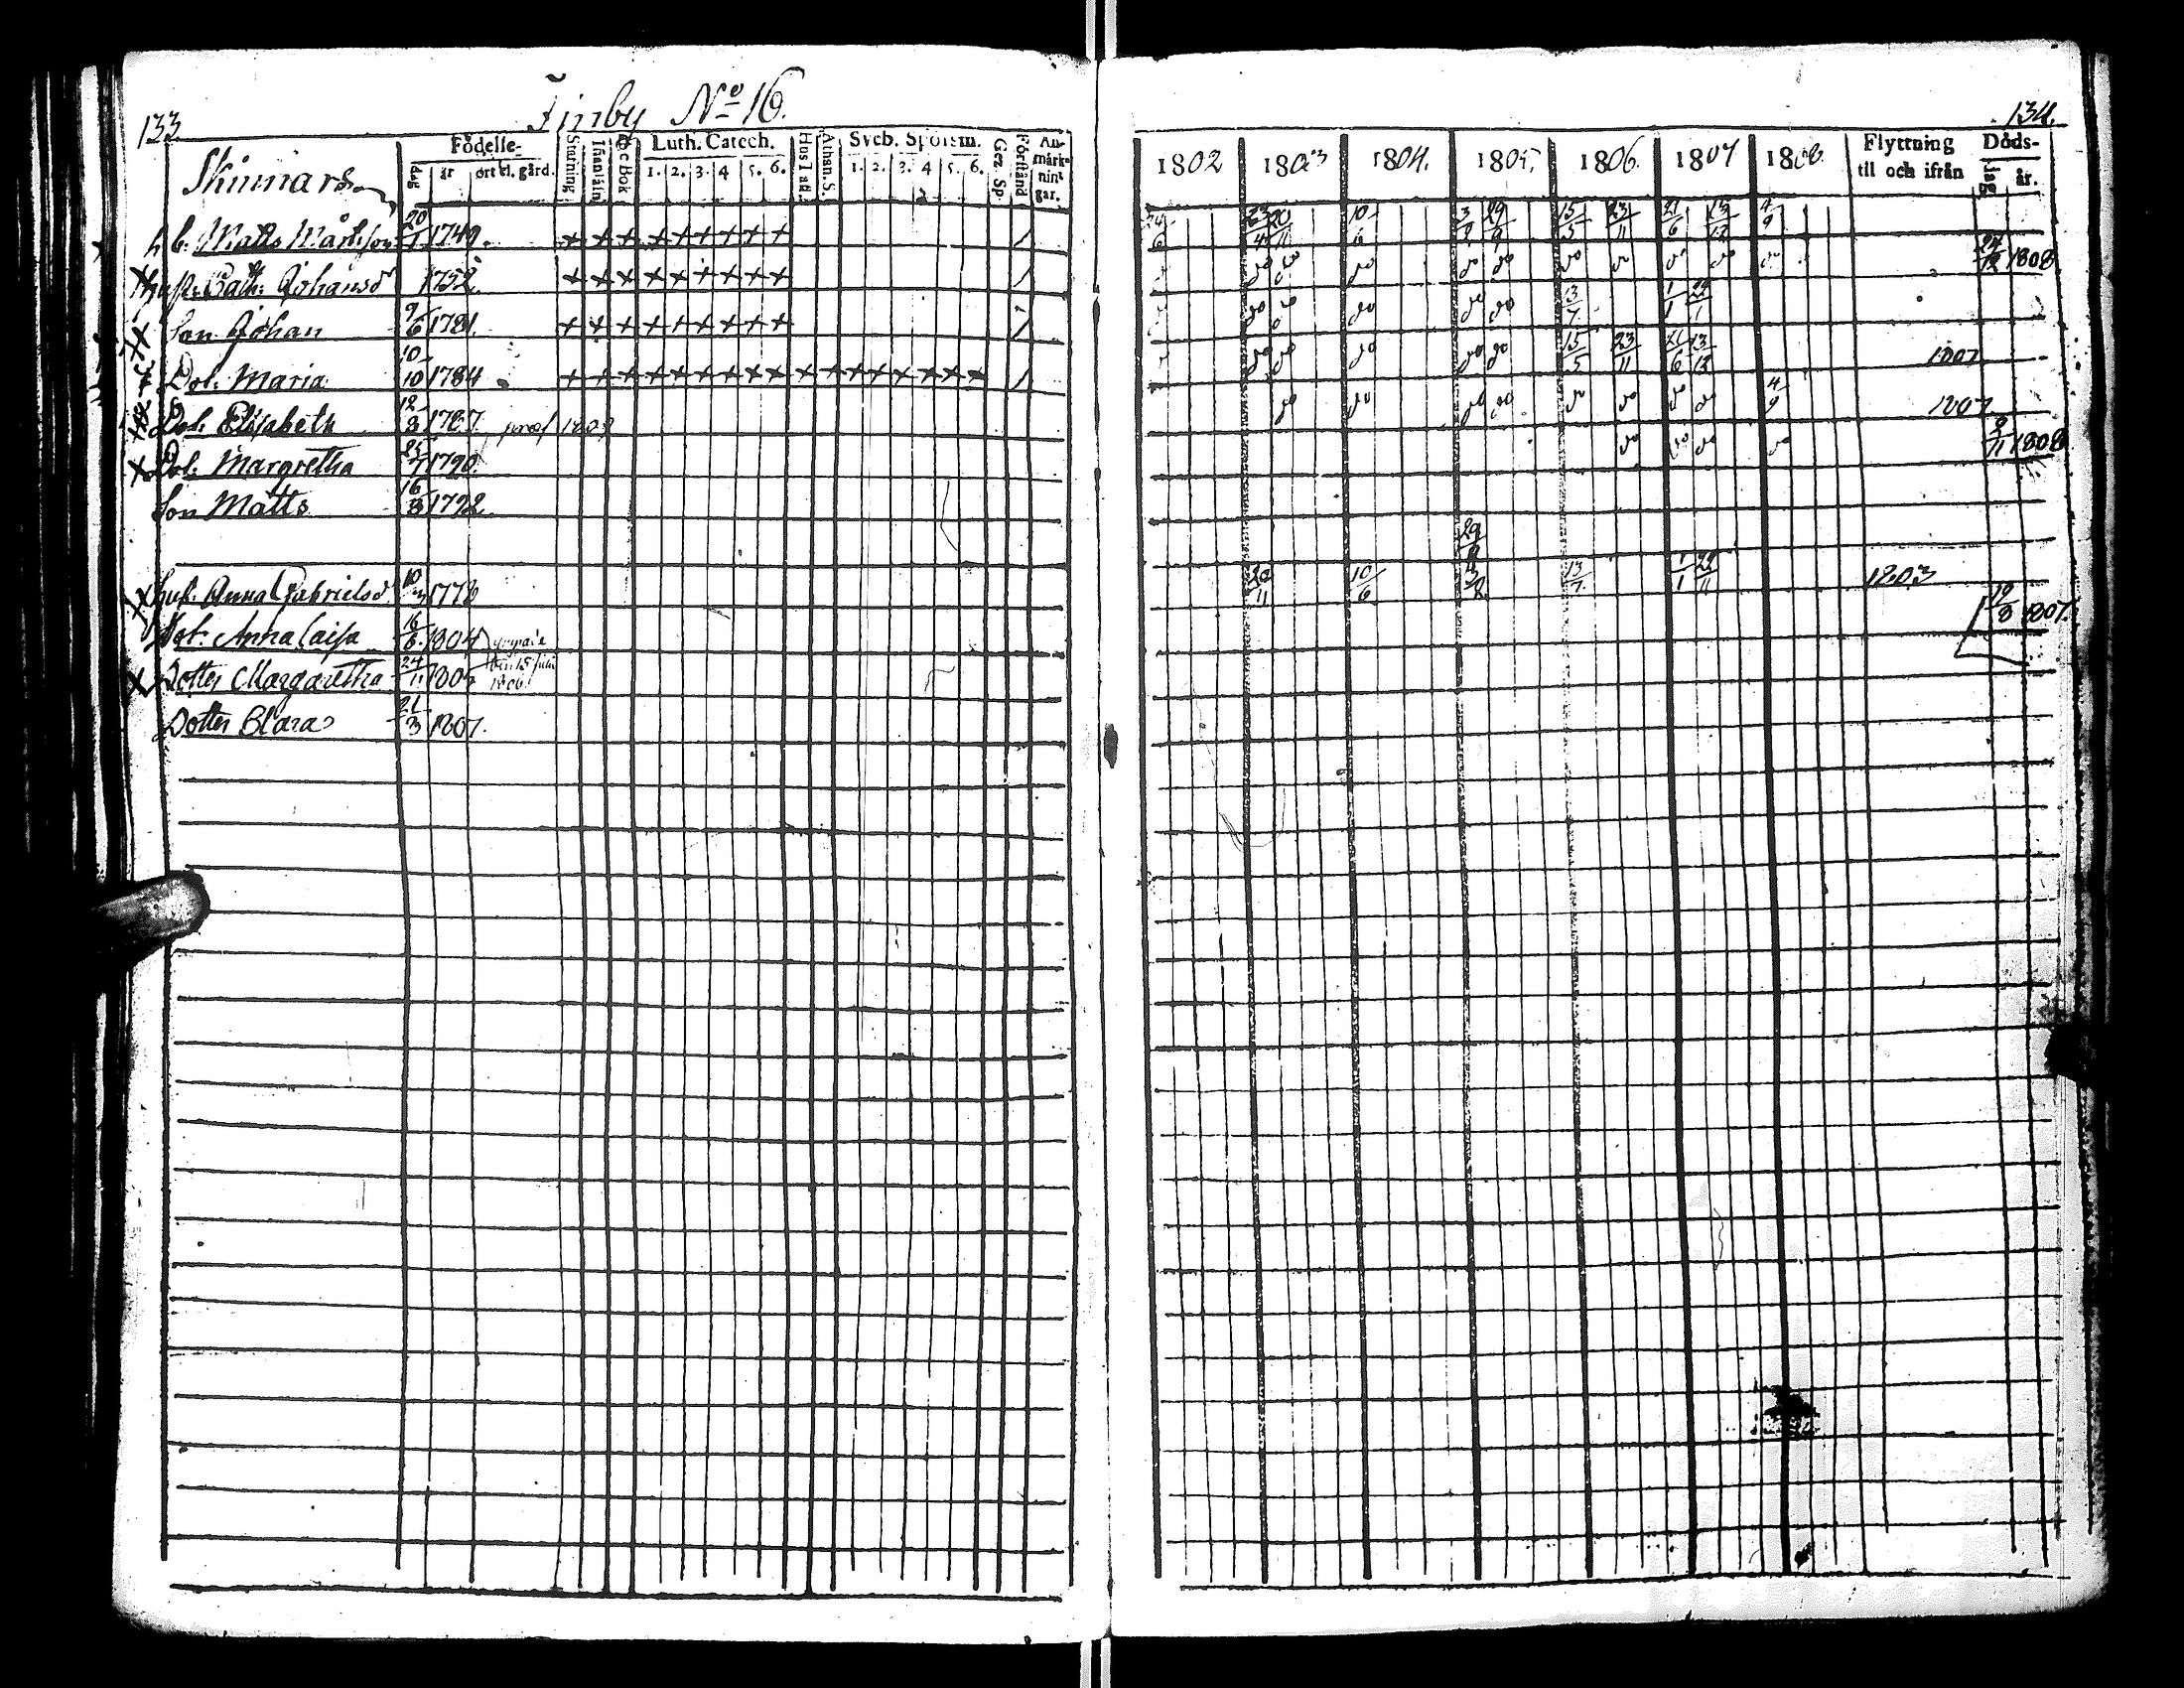 133
Finby No 16.
Skinnars
Födelse-
dag
år
ort el. gård.
Stafning
Innanläsn
Abc Bok
Luth. Catech.
1. 2. 3. 4 5. 6.
Hus Taf.
Athan. S.
Sveb. Spörsm.
1. 2. 3. 4 5. 6.
Gez. Sp
Förstånd
An-
märk-
nin-
gar.
b. Matts Mårtsson 20/1 1749. + + + + + + + + +
Hust. Cath: Johansd 1752. + + + + + + + + +
Son Johan 9/6 1781. + + + + + + + + +
Dot. Maria 10/10 1784 + + + + + + + + + + + + + + + + +
Dot. Elisabeth 12/8 1787.
Dot. Margretha 25/7 1790.
Son Matts 16/8 1792
Hust. Anna Gabrielsd 10/3 1778
Dot. Anna Caisa 16/6. 1804
Dotter Margaretha 24/11 1805
Dotter Clara 21/3 1807.
134.
1802 1803 1804. 1805. 1806. 1807 1808.
Flyttning
til och ifrån
Döds-
dag
år.
24/6 23/4 20/11 10/6 3/2 29/9 15/5 23/11 21/6 13/12 4/9
do do do do do do do do do do 24/12 1808
do do do do do 13/7 1/1 22/11
do do do do do 15/5 23/11 21/6 13/12 1807
do do do do do do do do 4/9 1807
do do do do 2/11 1808
29/9
20/11 10/6 3/2 13/7 1/1 22/11 1803
12/8 1807.